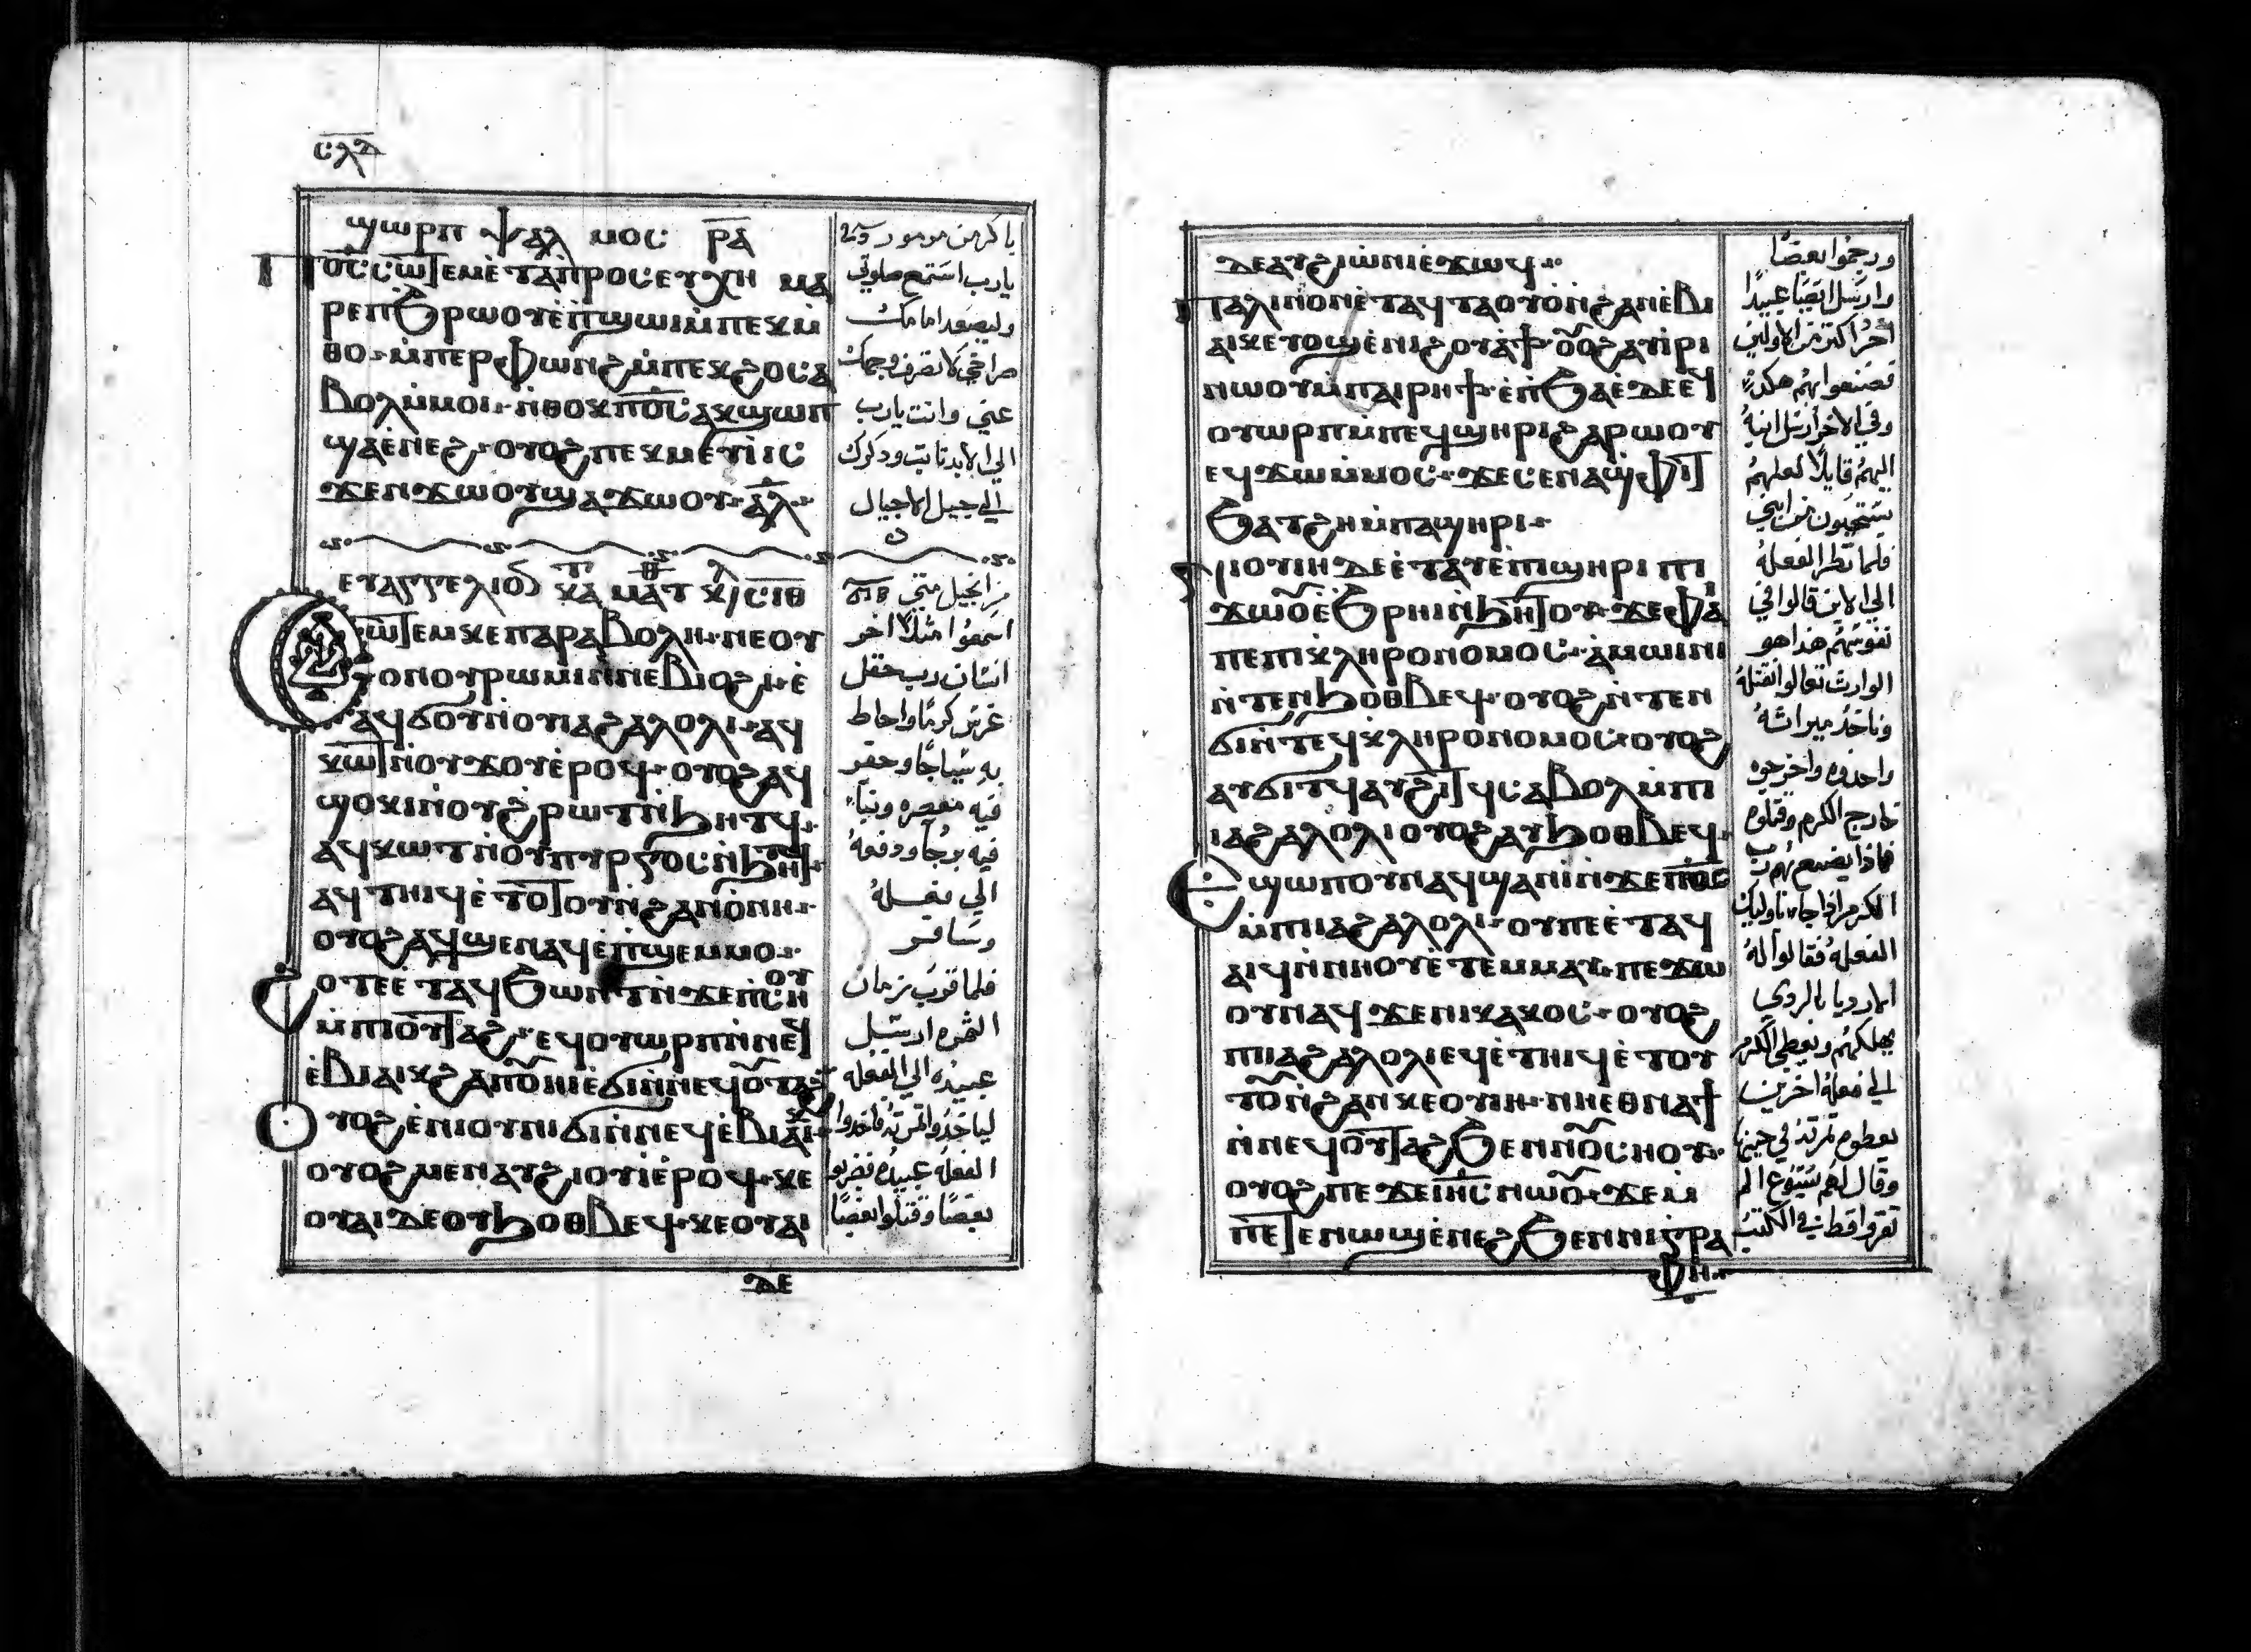 ⲥⲗⲇ
ϣⲱⲣⲡ ⲯⲁⲗⲙⲟⲥ ⲣⲁ
Ⲡⲟ̅ⲥ̅ ⲥⲱⲧⲉⲙ ⲉ̀ⲧⲁⲡⲣⲟⲥⲉⲩⲭⲏ ⲙⲁ
ⲣⲉⲡϧⲣⲱⲟⲩ ⲉ̀ⲡϣⲱⲓ ⲙ̀ⲡⲉⲕⲙ̀
ⲑⲟ ⲙ̀ⲡⲉⲣⲫⲱⲛϩ ⲙ̀ⲡⲉⲕϩⲟ ⲥⲁ
ⲃⲟⲗ ⲙ̀ⲙⲟⲓ ⲛ̀ⲑⲟⲕ ⲡⲟ̅ⲥ̅ ⲁⲕϣⲱⲡ
ϣⲁⲉ̀ⲛⲉϩ ⲟⲩⲟϩ ⲡⲉⲕⲙⲉⲩⲓ ⲓⲥ
ϫⲉⲛ ϫⲱⲟⲩ ϣⲁ ϫⲱⲟⲩ ⲁ̅ⲗ̅
ⲉⲩⲁⲅⲅⲉⲗⲓⲟⲛ ⲕⲁⲧⲁ ⲙⲁⲧⲑ ⲕⲉⲫ ⲥⲓⲑ
Ⲥⲱⲧⲉⲙ ⲕⲉⲡⲁⲣⲁⲃⲟⲗⲏ ⲛⲉ ⲟⲩ
ⲟⲛ ⲟⲩⲣⲱⲙⲓ ⲛ̀ⲛⲉⲃⲓⲟϩⲓ ⲉ̀
ⲁϥϭⲟ ⲛ̀ⲟⲩⲓⲁϩⲁⲗⲟⲗⲓ ⲁϥ
ⲕⲱϯ ⲛ̀ⲟⲩϫⲟⲓ ⲉ̀ⲣⲟϥ ⲟⲩⲟϩ ⲁϥ
ϣⲟⲕⲓ ⲛ̀ⲟⲩϩⲣⲱⲧ ⲛ̀ϧⲏⲧϥ
ⲁϥⲕⲱⲧ ⲛ̀ⲟⲩⲡⲩⲣⲅⲟⲥ ⲛ̀ϧⲏⲧϥ
ⲁϥⲧⲏⲓϥ ⲉ̀ⲧⲟⲧⲟⲩ ⲛ̀ϩⲁⲛⲟⲩⲓⲏ
ⲟⲩⲟϩ ⲁϥϣⲉⲛⲁϥ ⲉ̀ⲡϣⲉⲙⲙⲟ
Ϩⲟⲧⲉ ⲉ̀ⲧⲁϥϧⲱⲛⲧ ⲛ̀ϫⲉ ⲡⲥⲏⲟⲩ
ⲙ̀ⲡⲓⲟⲩⲧⲁϩ ⲉϥⲟⲩⲱⲣⲡ ⲛ̀ⲛⲉϥ
ⲉ̀ⲃⲓⲁⲓⲕ ϩⲁ ⲛⲓⲟⲩⲓⲏ ⲉ̀ϭⲓ ⲛ̀ⲛⲉϥⲟⲩⲧⲁϩ
Ⲟⲩⲟϩ ⲉ̀ⲛⲓⲟⲩⲓⲏ ϭⲓ ⲛ̀ⲛⲉϥⲉ̀ⲃⲓⲁⲓⲕ
ⲟⲩⲟϩ ⲙⲉⲛ ⲁⲩϩⲓⲟⲩⲓ ⲉ̀ⲣⲟϥ ⲕⲉ
ⲟⲩⲁⲓ ⲇⲉ ⲟⲩϧⲟⲑⲃⲉϥ ⲕⲉⲟⲩⲁⲓ
ⲇⲉ
يارب استمع صلوتي
وليصعد امامك
صراخي لا تصرف وجهك
عني وانت يارب
الى الابد ثابت وذكرك
الى جيل الاجيال
من انجيل متى
اسمعوا مثلا اخر
انسان رب حقل
غرس كرما واحاط
به سياجا وحفر
فيه معصره وبنا
فيه برجا ودفعه
الي فعله
وسافر
فلما قرب زمان
الثمره ارسل
عبيده الي الفعله
لياخذوا ثمرته فاخذوا
الفعله عبيده فضربوا
بعضا وقتلوا بعضا
ⲇⲉ ⲁⲩϩⲓⲱⲛⲓ ⲉ̀ϫⲱϥ
Ⲡⲁⲗⲓⲛ ⲟⲛ ⲉ̀ⲧⲁϥⲧⲁⲟⲩⲟ ⲛ̀ϩⲁⲛⲉ̀ⲃⲓ
ⲁⲓⲕ ⲉⲩⲟϣ ⲉ̀ⲛⲓϩⲟⲩⲁϯ ⲟⲩⲟϩ ⲁⲩⲓⲣⲓ
ⲛⲱⲟⲩ ⲙ̀ⲡⲁⲓⲣⲏϯ ⲉ̀ⲡϧⲁⲉ ⲇⲉ ⲉϥ
ⲟⲩⲱⲣⲡ ⲙ̀ⲡⲉϥϣⲏⲣⲓ ϩⲁⲣⲱⲟⲩ
ⲉϥϫⲱ ⲙ̀ⲙⲟⲥ ϫⲉ ⲥⲉⲛⲁϣⲫⲓⲧ
ϧⲁⲧϩⲏ ⲙ̀ⲡⲁϣⲏⲣⲓ
Ⲛⲓⲟⲩⲓⲏ ⲇⲉ ⲉ̀ⲧⲁⲩ ⲉ̀ⲡⲓϣⲏⲣⲓ ⲡⲉ
ϫⲱⲟⲩ ⲉ̀ϧⲣⲏⲓ ⲛ̀ϧⲏⲧⲟⲩ ϫⲉ ⲫⲁⲓ
ⲡⲉ ⲡⲓⲕⲗⲏⲣⲟⲛⲟⲙⲟⲥ ⲁⲙⲱⲓⲛⲓ
ⲛ̀ⲧⲉⲛϧⲟⲑⲃⲉϥ ⲟⲩⲟϩ ⲛ̀ⲧⲉⲛ
ϭⲓ ⲛ̀ⲧⲉϥⲕⲗⲏⲣⲟⲛⲟⲙⲟⲥ ⲟⲩⲟϩ
ⲁⲩϭⲓⲧϥ ⲁⲩϩⲓⲧϥ ⲥⲁⲃⲟⲗ ⲙ̀ⲡⲓ
ⲓⲁϩⲁⲗⲟⲗⲓ ⲟⲩⲟϩ ⲁⲩϧⲟⲑⲃⲉϥ
Ⲉϣⲱⲡ ⲟⲩⲛ ⲁϥϣⲁⲛⲓ ⲛ̀ϫⲉ ⲡⲟ̅ⲥ̅
ⲙ̀ⲡⲓⲓⲁϩⲁⲗⲟⲗⲓ ⲟⲩ ⲡⲉ ⲉ̀ⲧⲁϥ
ⲁⲓϥ ⲛ̀ⲛⲓⲟⲩⲉ ⲧⲉⲙⲙⲁⲩ ⲡⲉϫⲱ
ⲟⲩ ⲛⲁϥ ϫⲉ ⲛⲓⲕⲁⲕⲟⲥ ⲟⲩⲟϩ
ⲡⲓⲓⲁϩⲁⲗⲟⲗⲓ ⲉϥⲉ̀ⲧⲏⲓϥ ⲉ̀ⲧⲟⲩ
ⲧⲟⲩ ⲛ̀ϩⲁⲛⲕⲉⲟⲩⲓⲏ ⲛⲏ ⲉⲑⲛⲁϯ
ⲛ̀ⲛⲉϥⲟⲩⲧⲁϩ ϧⲉⲛ ⲛⲟⲩⲥⲛⲟⲩ
ⲟⲩⲟϩ ⲡⲉϫⲉ ⲓⲏ̅ⲥ̅ ⲛⲱⲟⲩ ϫⲉ ⲙ̀
ⲡⲉⲧⲉⲛⲱϣ ⲉ̀ⲛⲉϩ ϧⲉⲛ ⲛⲓⲅⲣⲁ
ⲫⲏ
ورجموا بعضا
وارسل ايضا عبيدا
اخر اكثر من الاولين
فصنعوا بهم هكذا
وفي الاخر ارسل ابنه
اليهم قايلا لعلهم
يستحيون من ابني
فلما نظر الفعله
الي الابن قالوا في
نفوسهم هذا هو
الوارث تعالوا نقتله
وناخذ ميراثه
واخذوه واخرجوه
خارج الكرم وقتلوه
فماذا يصنع بهم رب
الكرم اذا جاء باوليك
الفعله فقالوا له
الارديا بالردي
يهلكهم ويعطي الكرم
الي فعله اخرين
يعطوه ثمرته في حينها
وقال لهم يسوع الم
تقروا قط في الكتب